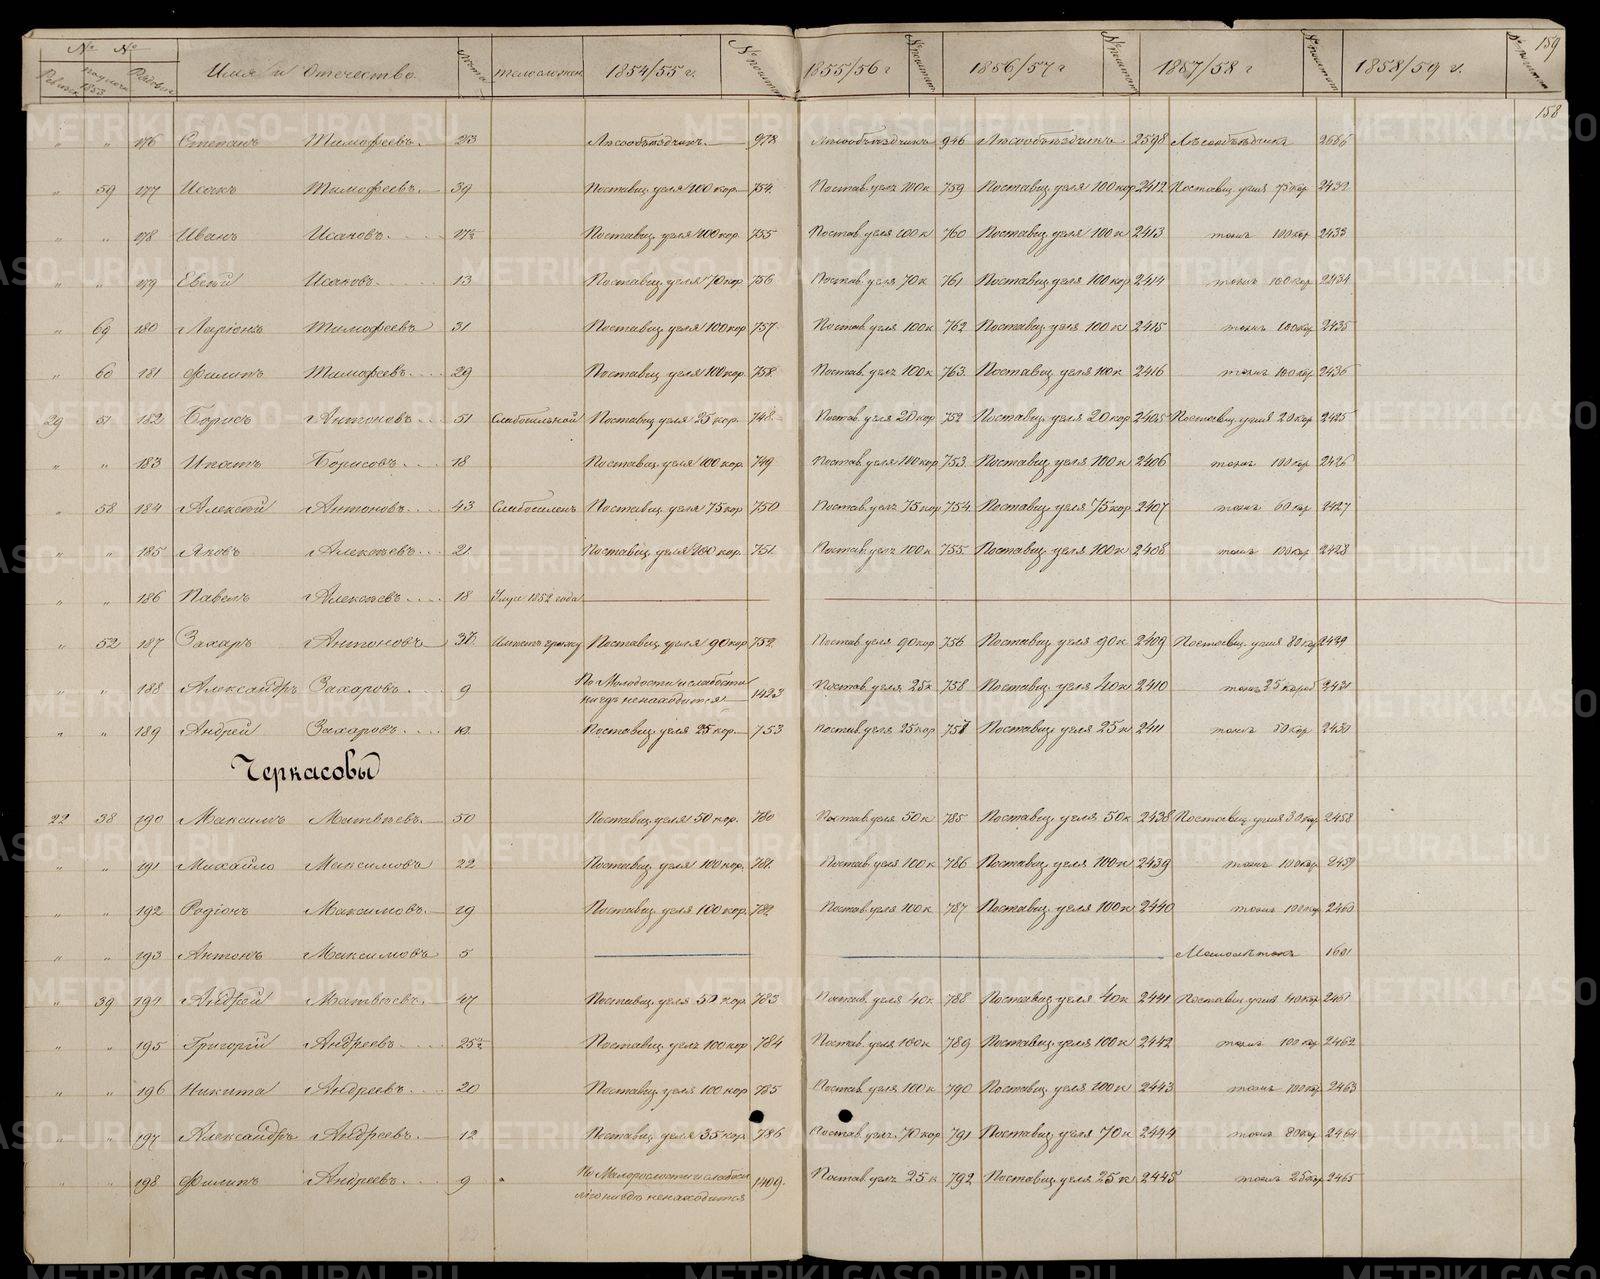 № № Имя и Отечество лета телослож 1854/55 г. № 1855/56 г 1856/57 г 1857/58 г 1858/59 г. 159
158
" " 176 Степанъ Тимофеевъ. 23 Лѣсообъѣздчикъ. 978 Лѣсообъѣздчикъ 946 Лѣсообъѣздчикъ 2598 Лѣсообъѣздчикъ 2686
" 59 177 Исакъ Тимофеевъ. 39 Поставщ. угля 100 кор. 754. Постав. угля 100 к 759 Поставщ угля 100 кор 2412 Поставщ угля 75 кор 2432
" " 178 Иванъ Исаковъ. Поставщ. угля 100 кор. 755 Постав. угля 100 к 760 Поставщ угля 100 к 2413 тожъ 100 кор 2433
" " 179 Евсѣй Исаковъ. 13 Поставщ. угля 70 кор 756 Постав. угля 70 к 761 Поставщ угля 100 кор 2414 тожъ 100 кор 2434
" 69 180 Ларіонъ Тимофеевъ 31 Поставщ угля 100 кор 757 Постав. угля 100 к 762 Поставщ угля 100 к 2415 тожъ 100 кор 2435
" 60 181 Филипъ Тимофеевъ. 29 Поставщ угля 100 кор. 758. Постав. угля 100 к 763. Поставщ угля 100 к 2416 тожъ 100 кор 2436
29 51 182 Борисъ Антоновъ. 51 Слабосильной Поставщ угля 25 кор. 748. Постав. угля 20 кор 752 Поставщ угля 20 кор 2405 Поставщ угля 20 кор 2425
" " 183 Ипатъ Борисовъ. 18 Поставщ. угля 100 кор. 749 Постав. угля 100 кор 753. Поставщ угля 100 к 2406 тожъ 100 кор 2426
" 58 184 Алексѣй Антоновъ. 43 Слабосиленъ Поставщ. угля 75 кор 750 Постав. угля 75 кор 754. Поставщ угля 75 кор 2407 тожъ 60 кор 2427
" " 185 Яковъ Алексѣевъ. 21. Поставщ. угля 100 кор. 751. Постав. угля 100 к 755. Поставщ угля 100 к 2408 тожъ 100 кор 2428
" " 186 Павелъ Алексѣевъ. 18 Умре 1852 года
" 52 187 Захаръ Антоновъ 37 Имѣетъ грыжу Поставщ угля 90 кор 752. Постав. угля 90 кор 756 Поставщ угля 90 к 2409 Поставщ. угля 80 кор 2429
" " 188 Александръ Захаровъ. 9 По Молодости и слабости 1423 Постав. угля 25 к 758 Поставщ угля 40 к 2410 тожъ 25 короб 2431
нигдѣ ненаходится
" " 189 Андрей Захаровъ. Поставщ угля 25 кор. 753 Постав угля 25 кор 757 Поставщ угля 25 к 2411 тожъ 50 кор 2430
Черкасовы
22 38 190 Максимъ Матвѣевъ. 50 Поставщ. угля 50 кор. 780 Постав угля 50 к 785 Поставщ. угля 50 к 2438 Поставщ. угля 30 кор 2458
" " 191 Михайло Максимовъ 22 Поставщ. угля 100 кор. 781. Постав угля 100 к 786 Поставщ. угля 100 к 2439 тожъ 100 кор 2459
" " 192 Родіонъ Максимовъ. 19 Поставщ. угля 100 кор. 782 Постав. угля 100 к 787 Поставщ. угля 100 к 2440 тожъ 100 кор 2460
" " 193 Антонъ Максимовъ 5 Малолѣтокъ 1601
" 39 194 Андрей Матвѣевъ. 47 Поставщ. угля 50 кор 783 Постав. угля 40 к 788 Поставщ угля 40 к 2441 Поставщ угля 40 кор 2461
" " 195 Григорій Андреевъ. 25 Поставщ. угля 100 кор 784 Постав. угля 100 к 789 Поставщ угля 100 к 2442 тожъ 100 кор 2462
" " 196 Никита Андреевъ. 20 Поставщ угля 100 кор 785 Постав. угля 100 к 790 Поставщ угля 100 к 2443 тожъ 100 кор 2463
" " 197 Александръ Андреевъ. 12 Поставщ угля 35 кор 786 Постав. угля 70 кор 791 Поставщ угля 70 к 2444 тожъ 80 кор 2464
" " 198 Филипъ Андреевъ. 9 По Малорослости и слабосн 1409. Постав. угля 25 к 792 Поставщ угля 25 к 2445 тожъ 25 кор 2465
ненаходится
METRIKI.GASO-URAL.RU